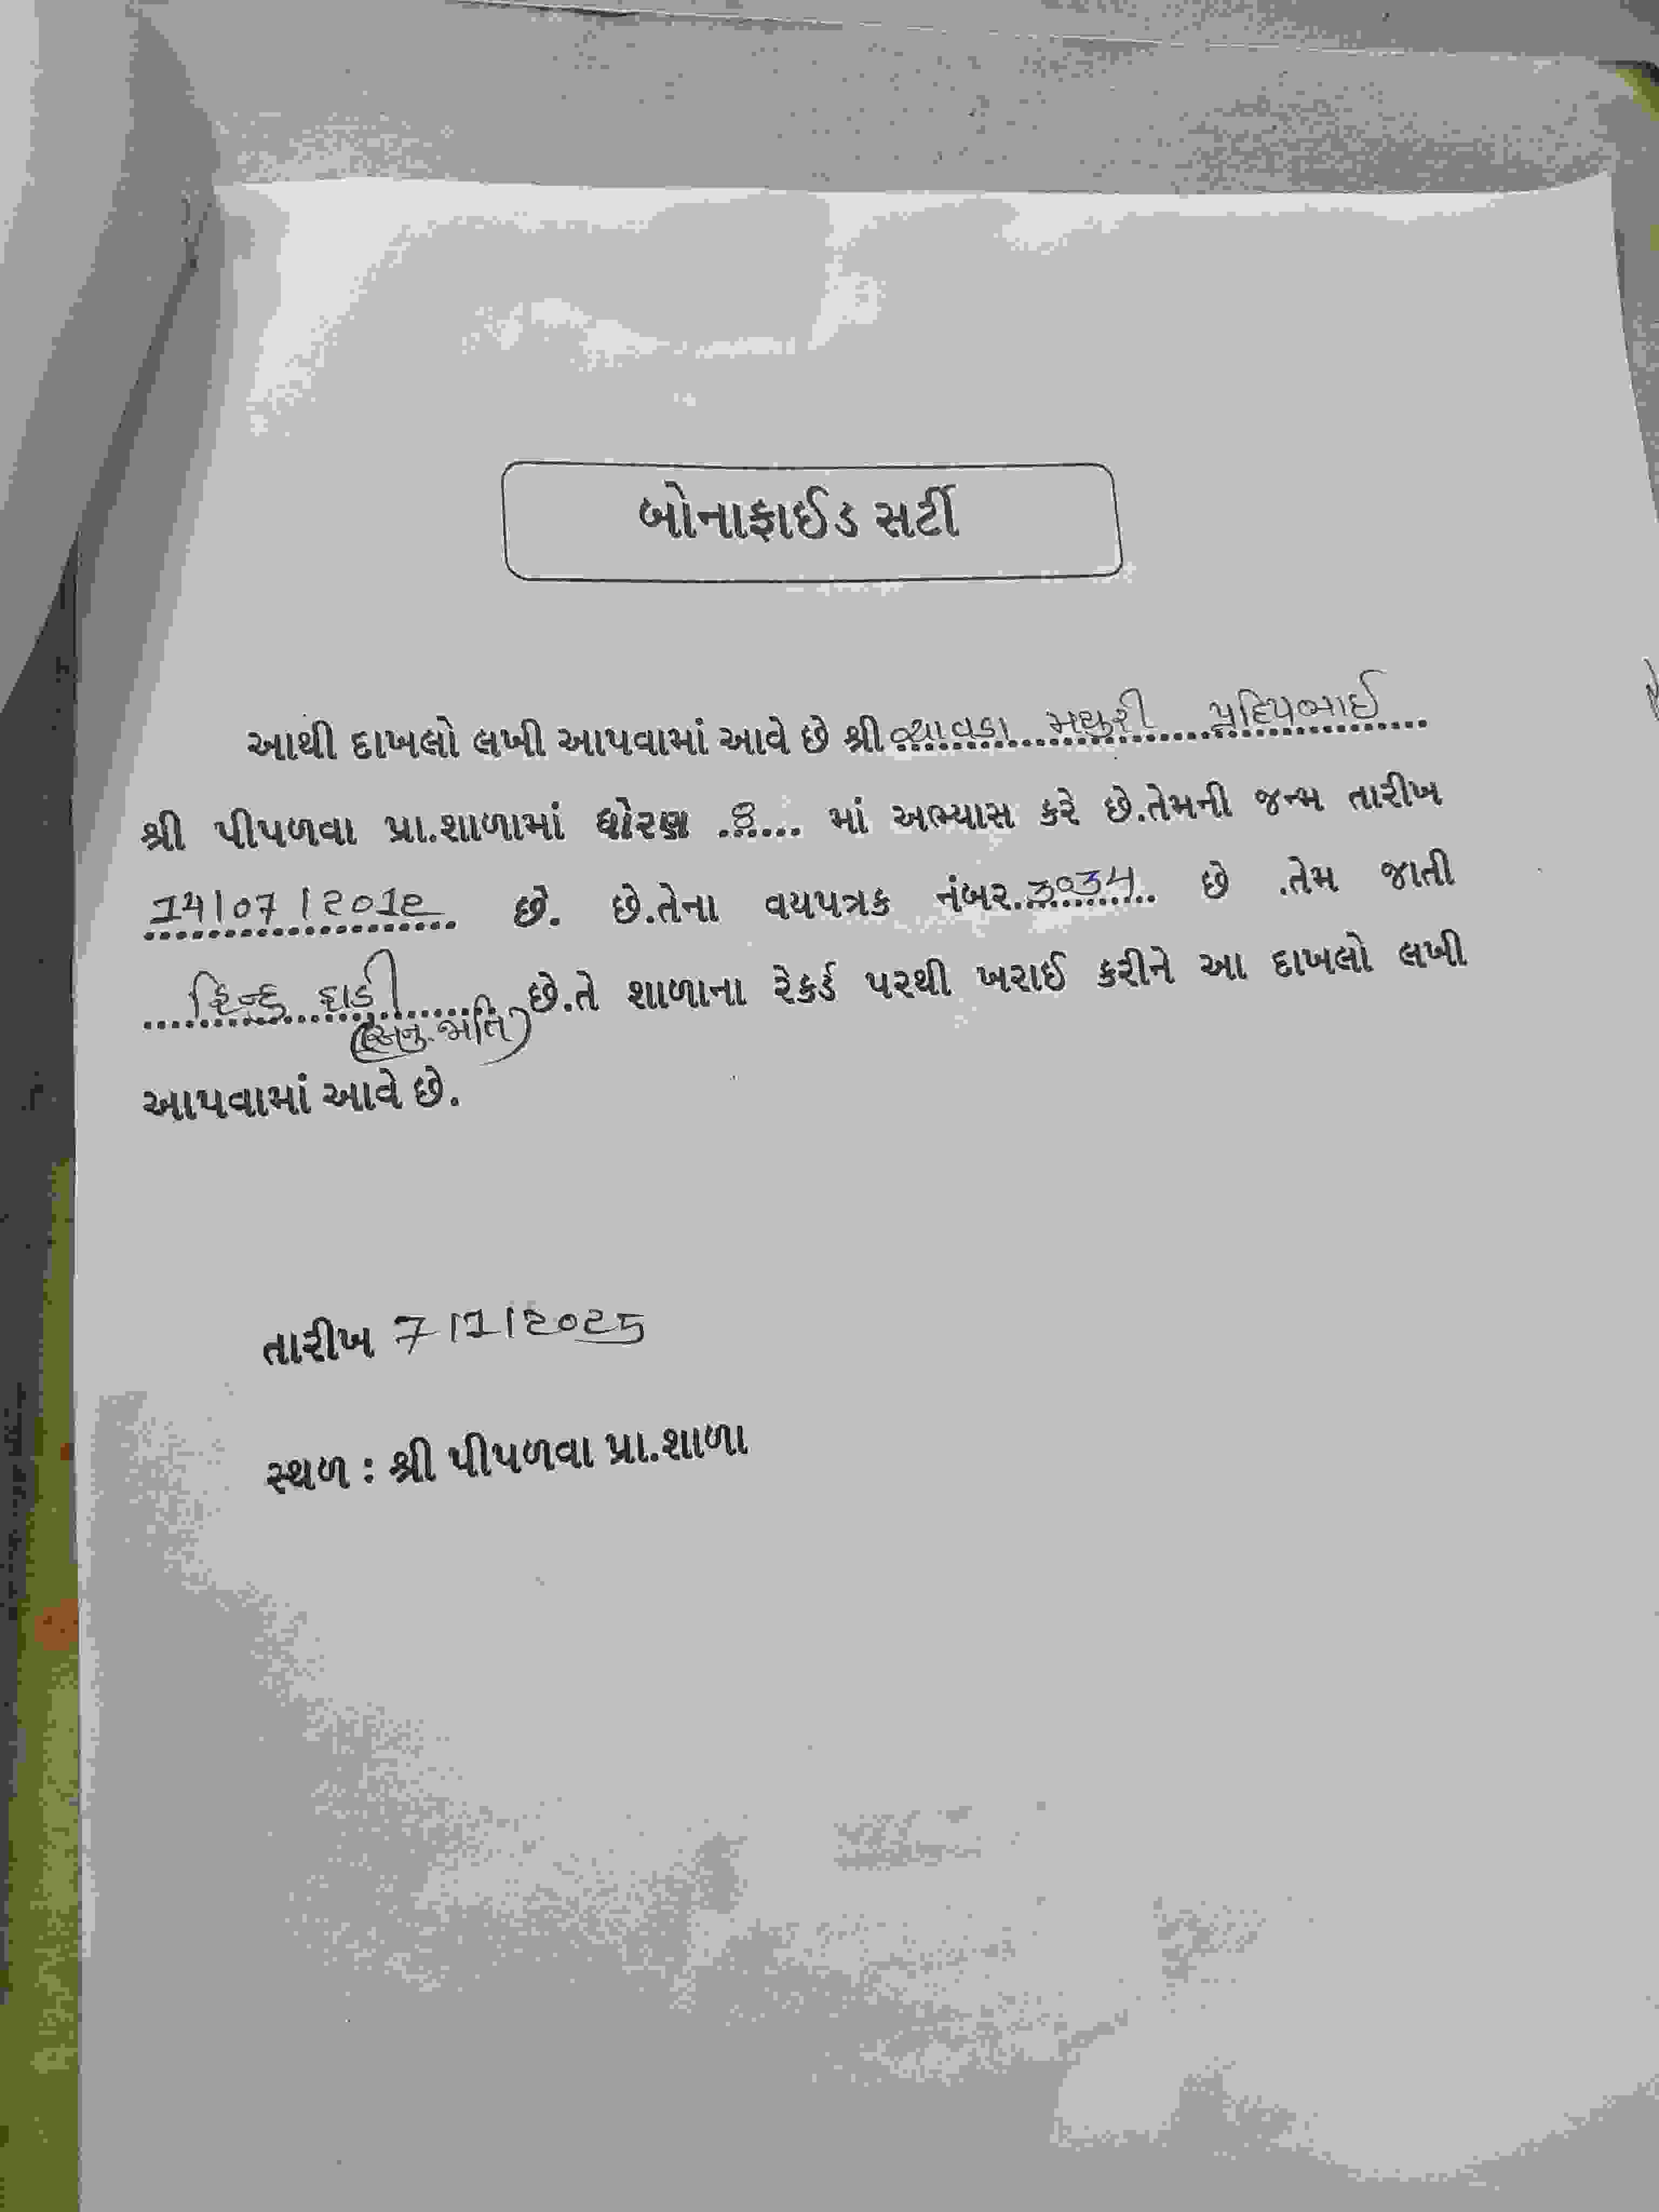 બોનાફાઈડ સર્ટી
આથી દાખલો લખી આપવામાં આવે છે શ્રી ચાવડા મયુરી પ્રદિપભાઈ
શ્રી પીપળવા પ્રા.શાળામાં ધોરણ .8.... માં અભ્યાસ કરે છે.તેમની જન્મ તારીખ
14/07/2012 છે. છે.તેના વયપત્રક નંબર.3034.. છે .તેમ જાતી
હિન્દુ (અનુ.જાતિ) છે.તે શાળાના રેકર્ડ પરથી ખરાઈ કરીને આ દાખલો લખી
આપવામાં આવે છે.
તારીખ 7/1/2025
સ્થળ : શ્રી પીપળવા પ્રા.શાળા